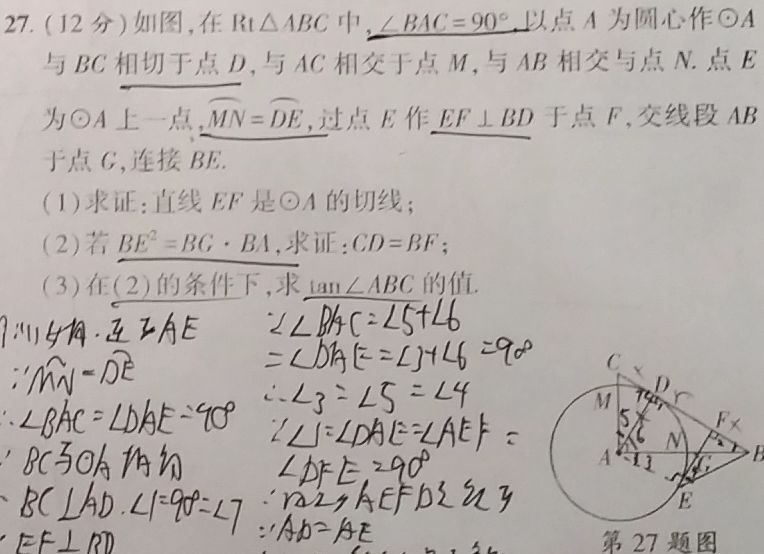 27. (12分)如图,在Rt△ABC中,∠BAC=90°,以点A为圆心作⊙A
与BC相切于点D,与AC相交于点M,与AB相交与点N.点E
为⊙A上一点,MN=DE,过点E作EF⊥BD于点F,交线段AB
于点G,连接BE.
(1)求证:直线EF是⊙A的切线;
(2)若BE²=BG·BA,求证:CD=BF;
(3)在(2)的条件下,求tan∠ABC的值.
AE
∵MN=DE
∴∠BAC=∠DAE=90°
BC与⊙A相切
BC⊥AD.∠1=90°=∠7
EF⊥BD
∵∠BAC=∠5+∠6
=∠DAE=∠3+∠6=90°
∴∠3=∠5=∠4
∵∠1=∠DAE=∠AEF=
∠DFE=90°
∵AD=AE
C
M
D
F
A
N
G
B
E
第27题图